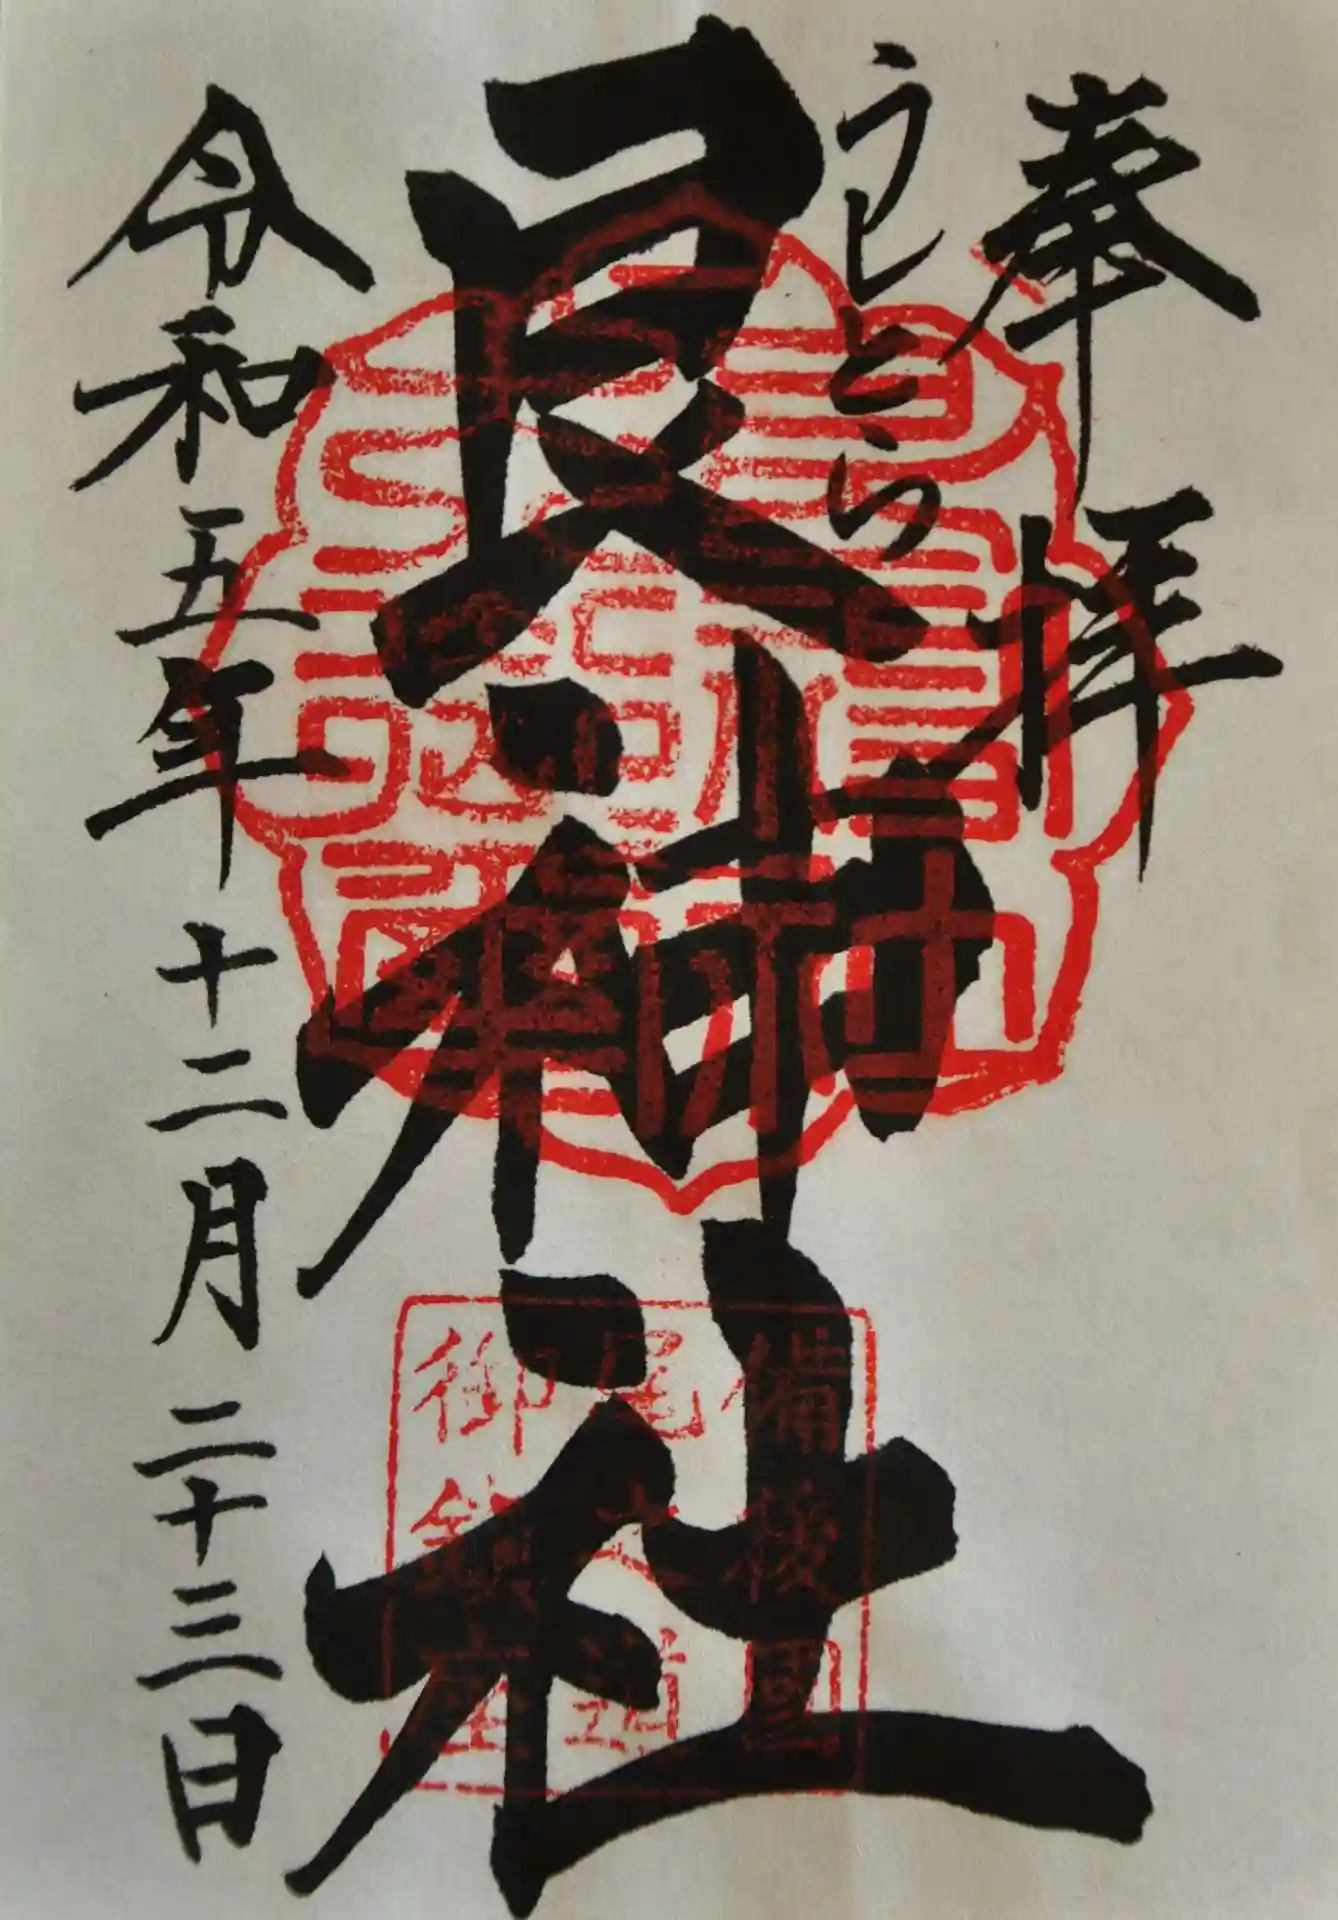 奉拝
うしとら
艮神社
備後國
尾之道
御鎮座
令和五年十二月二十三日